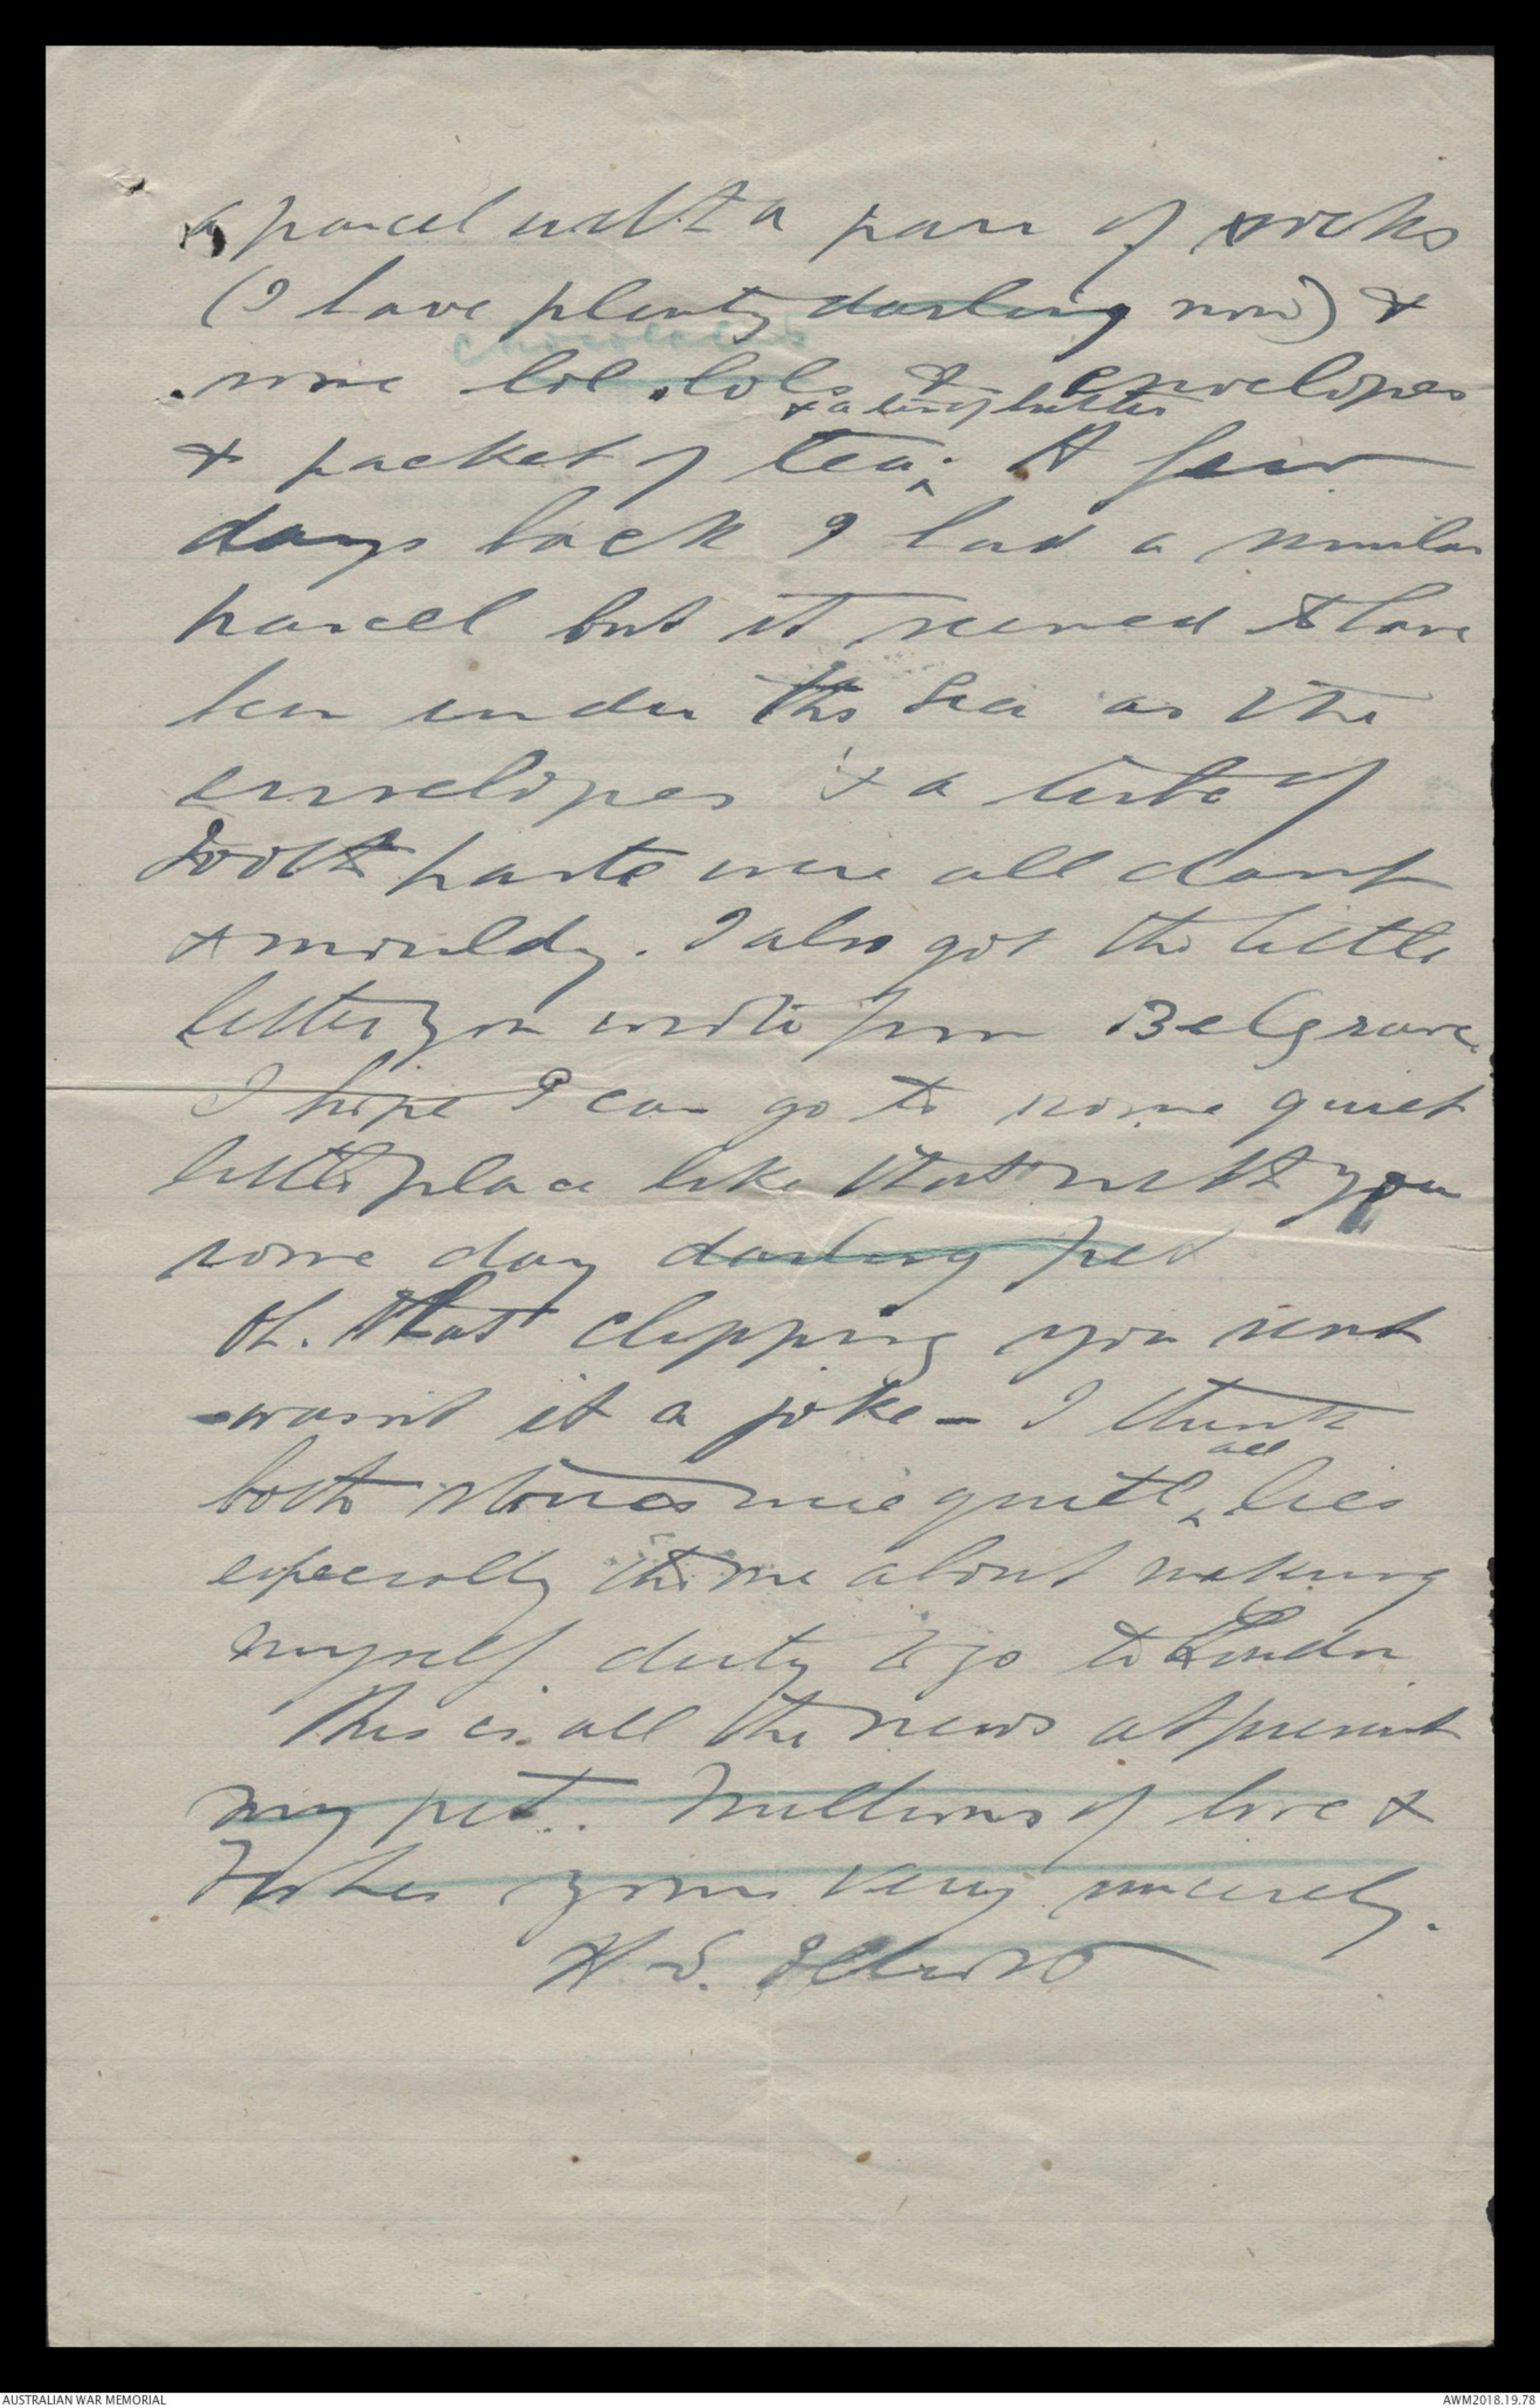 a parcel with a pair of socks
(I have plenty darling now) &
chocolates
some lol lols & envelopes
& a tin of butter
& packet of tea. A few
days back I had a similar
parcel but it seemed to have
been under the sea as the
envelopes & a tube of
tooth paste were all damp
& mouldy. I also got the little
letter you wrote from Belgrave.
I hope I can go to some quiet
little place like that with you
some day darling pet
Oh. that clipping you sent
wasn't it a joke - I think
all
both stories were quite lies
especially the one about making
myself dirty to go to London
This is all the news at present
my pet. Millions of love &
kisses yours very sincerely.
H. E. Elliott
AUSTRALIAN WAR MEMORIAL
AWM2018.19.78